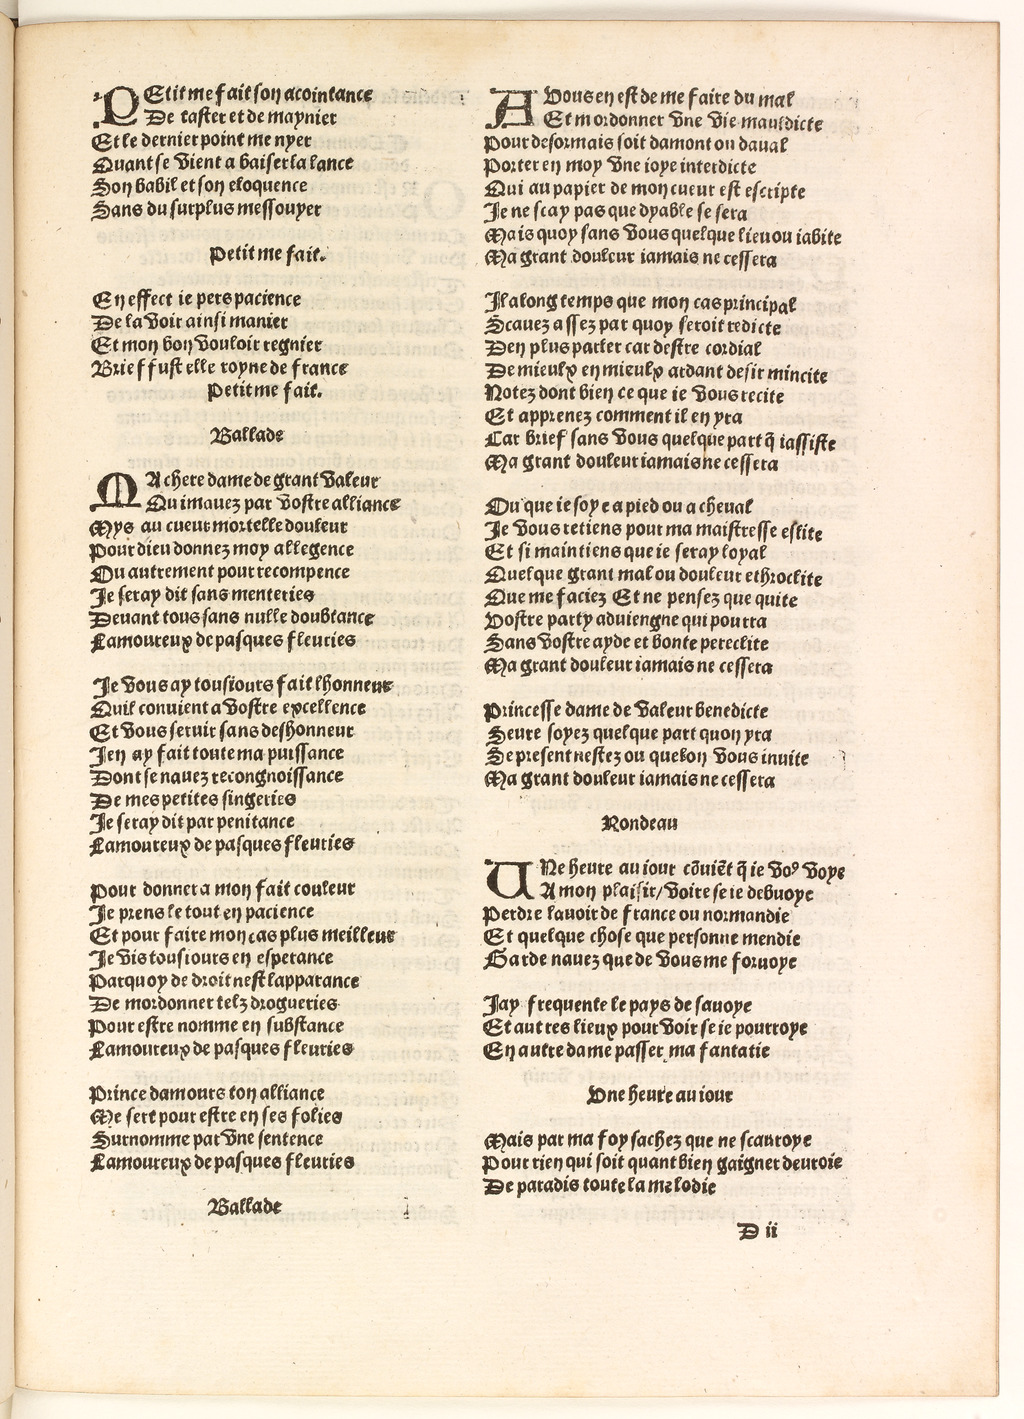 PEtit me fait son acointance
De taster et de maynier
Et le dernier point me nyer
Quant se vient a baiser la lance
Son babil et son eloquence
Sans du surplus messouyer
Petit me fait.
En effect ie pers pacience
De la voir ainsi manier
Et mon bon vouloir regnier
Brief fust elle royne de france
Petit me fait.
Ballade
MA chere dame de grant valeur
Qui mauez par vostre alliance
Mys au cueur mortelle douleur
Pour dieu donnez moy allegence
Ou autrement pour recompence
Je seray dit sans menteries
Deuant tous sans nulle doubtance
Lamoureux de pasques fleuries
Je vous ay tousiours fait lhonneur
Quil conuient a vostre excellence
Et vous seruir sans deshonneur
Jen ay fait toute ma puissance
Dont se nauez recongnoissance
De mes petites singeries
Je seray dit par penitance
Lamoureux de pasques fleuries
Pour donner a mon fait couleur
Je prens le tout en pacience
Et pour faire mon cas plus meilleur
Je vis tousiours en esperance
Parquoy de droit nest lapparance
De mordonner telz drogueries
Pour estre nomme en substance
Lamoureux de pasques fleuries
Prince damours ton alliance
Me sert pour estre en ses folies
Surnomme par vne sentence
Lamoureux de pasques fleuries
Ballade
A Vous en est de me faire du mal
Et mordonner vne vie mauldicte
Pour desormais soit damont ou daual
Porter en moy vne ioye interdicte
Qui au papier de mon cueur est escripte
Je ne scay pas que dyable se sera
Mais quoy sans vous quelque lieu ou iabite
Ma grant douleur iamais ne cessera
Il a long temps que mon cas principal
Scauez assez par quoy seroit redicte
Den plus parler car destre cordial
De mieulx en mieulx ardant desir mincite
Notez dont bien ce que ie vous recite
Et apprenez comment il en yra
Car brief sans vous quelque part q̃ iassiste
Ma grant douleur iamais ne cessera
Ou que ie soye a pied ou a cheual
Je vous retiens pour ma maistresse eslite
Et si maintiens que ie seray loyal
Quelque grant mal ou douleur ethroclite
Que me faciez Et ne pensez que quite
Vostre party aduiengne qui pourra
Sans vostre ayde et bonte pereclite
Ma grant douleur iamais ne cessera
Princesse dame de valeur benedicte
Seure soyez quelque part quon yra
Se present nestez ou quelon vous inuite
Ma grant douleur iamais ne cessera
Rondeau
UNe heure au iour cõuiẽt q̃ ie voꝰ voye
A mon plaisir/ voire se ie debuoye
Perdre lauoir de france ou normandie
Et quelque chose que personne mendie
Garde nauez que de vous me foruoye
Jay frequente le pays de sauoye
Et autres lieux pour voir se ie pourroye
En autre dame passer ma fantasie
Vne heure au iour
Mais par ma foy sachez que ne scauroye
Pour rien qui soit quant bien gaigner deuroie
De paradis toute la melodie
D ii